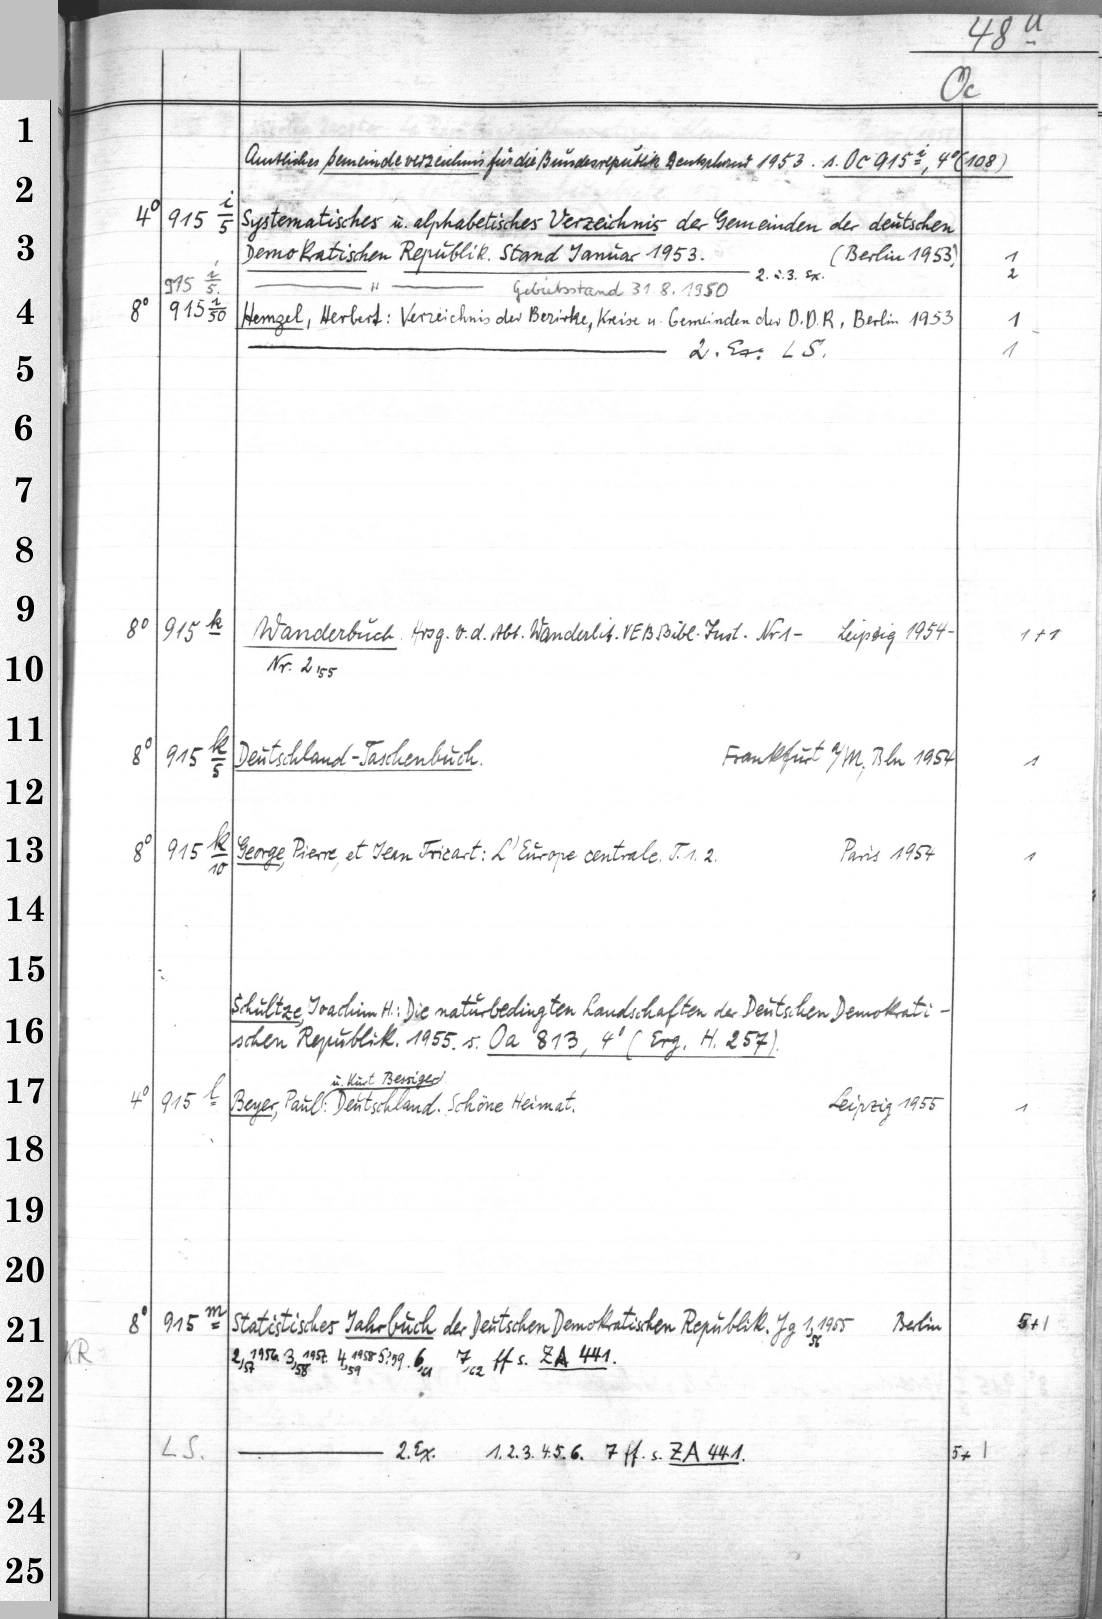 48 a
Oc
1
Amtliches Gemeindeverzeichnis für die Bundesrepublik Deutschland 1953. s. Oc 915 i, 4° (108)
2
4° 915 i/5 Systematisches u. alphabetisches Verzeichnis der Gemeinden der deutschen
3
Demokratischen Republik. Stand Januar 1953. (Berlin 1953) 1
2. u. 3. Ex. 2
915 i/5. — " — Gebietsstand 31.8.1950
4 8° 915 i/50 Hemzel, Herbert: Verzeichnis der Bezirke, Kreise u. Gemeinden der D.D.R, Berlin 1953 1
2. Ex. LS. 1
5
6
7
8
9
8° 915 k Wanderbuch. Hrsg. v. d. Abt. Wanderlit. VEB Bibl. Inst. Nr 1- Leipzig 1954- 1+1
10 Nr. 2,55
11
8° 915 k/5 Deutschland-Taschenbuch. Frankfurt a/M, Bln 1954 1
12
13 8° 915 k/10 George, Pierre, et Jean Tricart: L'Europe centrale. T. 1. 2. Paris 1954 1
14
15
Schultze, Joachim H.: Die naturbedingten Landschaften der Deutschen Demokrati-
16 schen Republik. 1955. s. Oa 813, 4° (Erg. H. 257).
u. Kurt Bessiger
17 4° 915 l Beyer, Paul: Deutschland. Schöne Heimat. Leipzig 1955 1
18
19
20
21 8° 915 m Statistisches Jahrbuch der Deutschen Demokratischen Republik. Jg 1,1955 Berlin 5+1
56
KR 2,1956. 3,1957. 4,1958 5,59. 6,61 7,62 ff s. ZA 441.
57 58 59
22
23 LS. 2. Ex. 1.2.3.4.5.6. 7 ff. s. ZA 441. 5+1
24
25